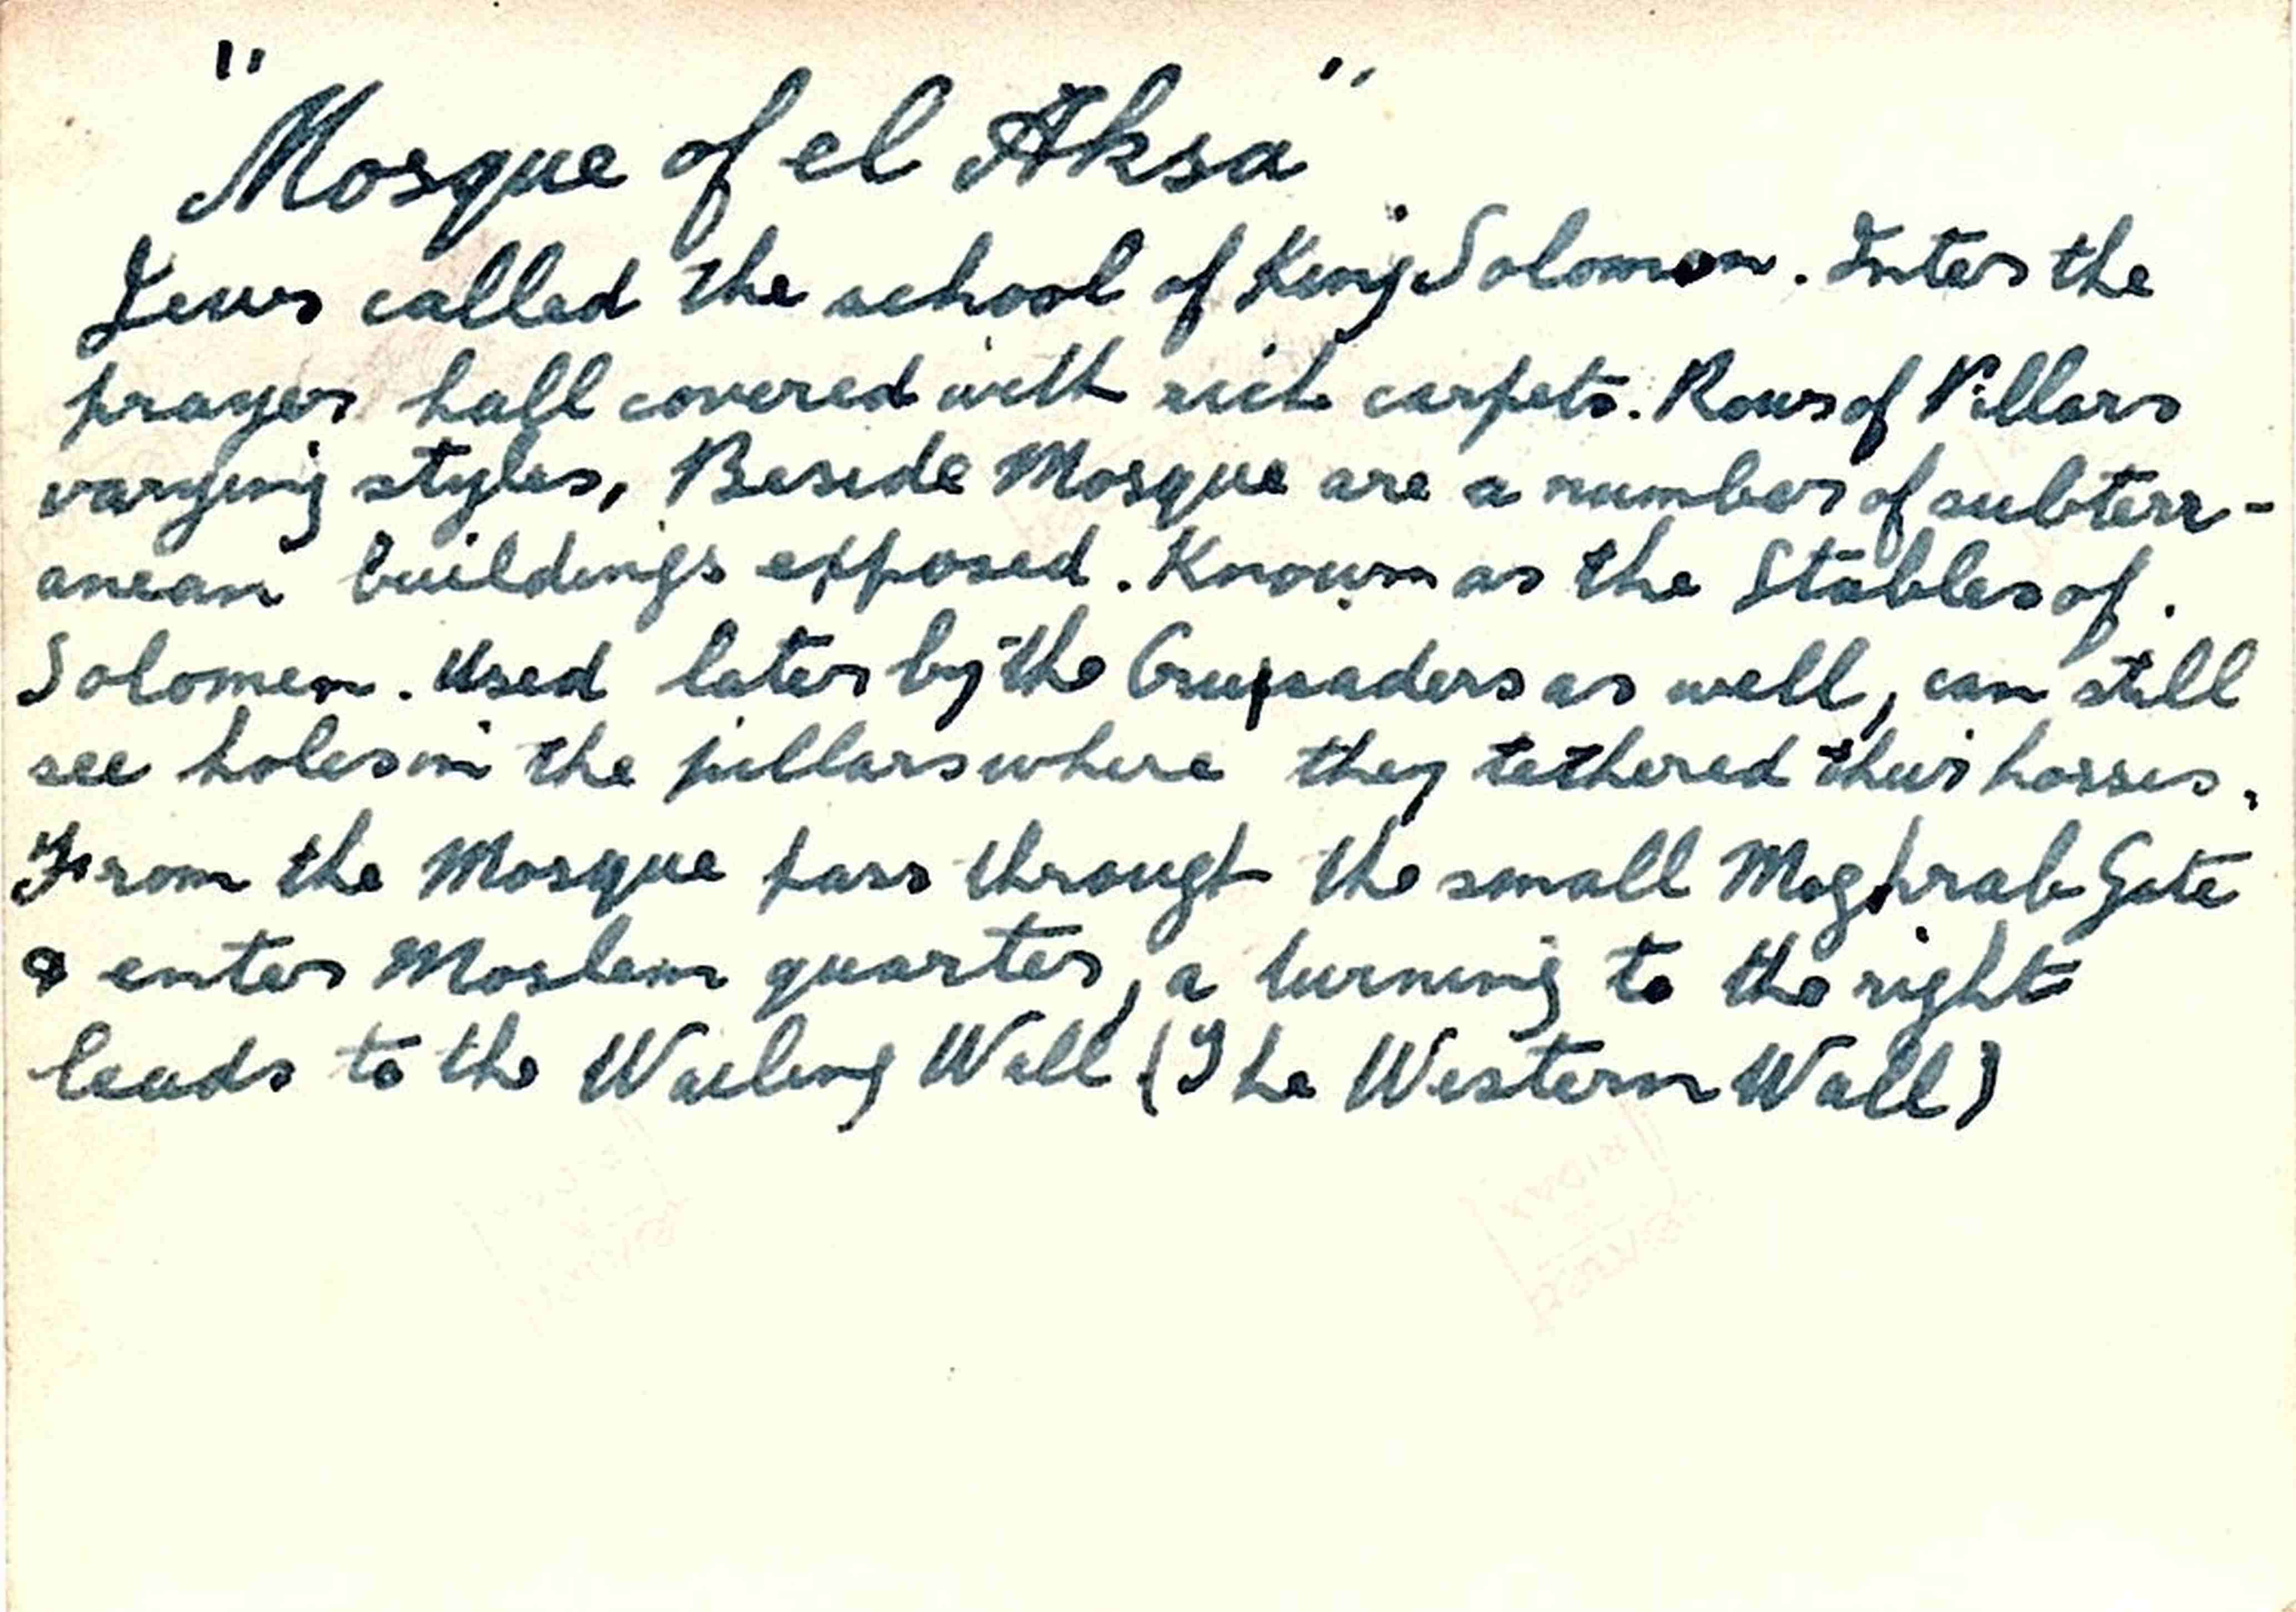 "Mosque of el Aksa"
Jews called the school of King Solomon. Inter the
prayer hall covered with rich carpets. Rows of Pillars
varying styles, Beside Mosque are a number of subterr-
anean buildings exposed. Known as the Stables of.
Solomen. Used later by the Crusaders as well, can still
see holes in the pillars where they tethered their horses.
From the Mosque pass through the small Moghrab Gate
& enter Moslem quarter, a turning to the right
leads to the Wailing Wall (The Western Wall)